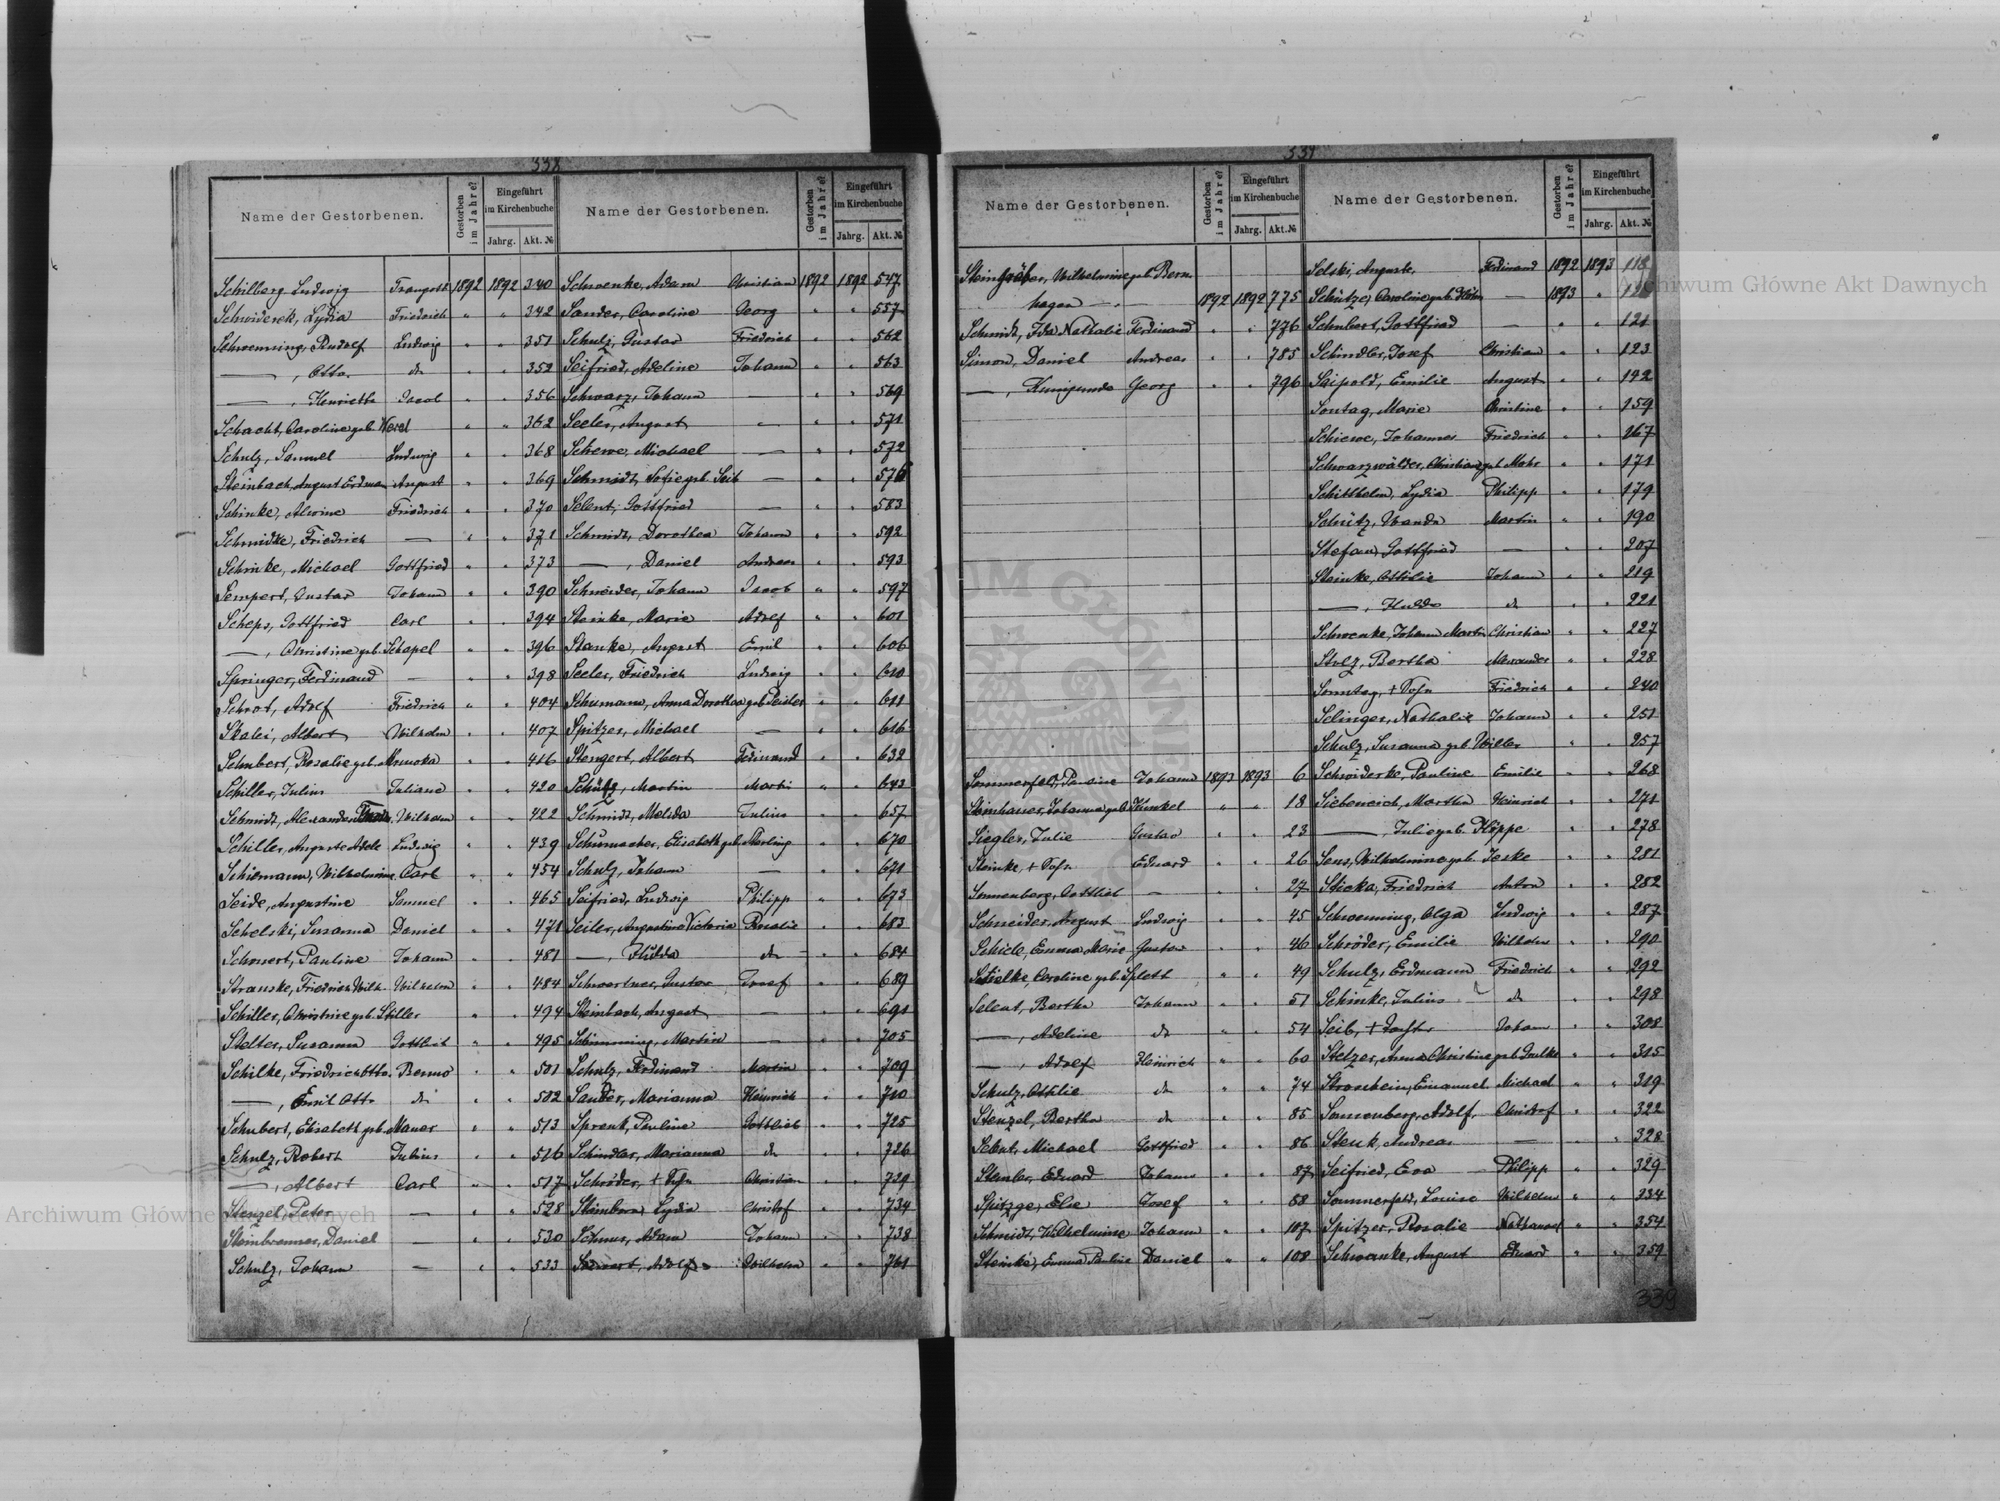 338
Name der Gestorbenen. Gestorben im Jahre? Eingeführt im Kirchenbuche Jahrg. Akt. №
Schilberg Ludwig Traugott 1892 1892 340
Schwiderek, Lydia Friedrich " " 342
Schwenning, Rudolf Ludwig " " 351
—, Otto do " " 352
—, Henriette Jacob " " 356
Schacht, Caroline geb. " " 362
Schulz, Samuel Ludwig " " 368
Steinbach, August Erdman August " " 369
Schinke, Alwine Friedrich " " 370
Schmidke, Friedrich — " " 371
Schinke, Michael Gottfried " " 373
Sempert, Gustav Johann " " 390
Scheps, Gottfried Carl " " 394
—, Christine geb. Schapel " " 396
Springer, Ferdinand — " " 398
Schrot, Adolf Friedrich " " 404
Skalei, Albert Wilhelm " " 407
Schubert, Rosalie geb. " " 416
Schiller, Julius Juliane " " 420
Schmidt, Alexander Wilhelm " " 422
Schiller, Auguste Adele Ludwig " " 439
Schiemann, Wilhelmine Carl " " 454
Seide, Augustine Samuel " " 465
Schelski, Susanna Daniel " " 471
Schonert, Pauline Johann " " 481
Stranske, Friedrich Wilh. Wilhelm " " 484
Schiller, Christine geb. Stiller " " 494
Stelter, Susanna Gottlieb " " 495
Schilke, Friedrich Otto Benno " " 501
—, Emil Otto do " " 502
Schubert, Elisabeth geb. Mauer " " 513
Schulz, Robert Julius " " 516
—, Albert Carl " " 517
Stenzel, Peter — " " 528
Steinbrenner, Daniel — " " 530
Schulz, Johann — " " 533
Name der Gestorbenen. Gestorben im Jahre? Eingeführt im Kirchenbuche Jahrg. Akt. №
Schwenke, Adam Christian 1892 1892 547
Sander, Caroline Georg " " 557
Schulz, Gustav Friedrich " " 562
Seifried, Adeline Johann " " 563
Schwarz, Johann — " " 569
Seeler, August — " " 571
Schewe, Michael — " " 572
Schmidt, Sofie geb. Seib — " " 576
Selent, Gottfried — " " 583
Schmidt, Dorothea Johann " " 592
—, Daniel Andreas " " 593
Schneider, Johann Jacob " " 597
Steinke, Marie Adolf " " 601
Stanke, August Emil " " 606
Seeler, Friedrich Ludwig " " 610
Schumann, Anna Dorothea geb. Peisler " " 611
Spitzer, Michael — " " 616
Stengert, Albert Ferdinand " " 632
Schütz, Martin Martin " " 643
Schmidt, Melida Julius " " 657
Schumacher, Elisabeth geb. Sterling " " 670
Schulz, Johann — " " 671
Seifried, Ludwig Philipp " " 673
Seiler, Augustine Victoria Rosalie " " 683
—, Hulda do " " 684
Schwertner, Gustav Josef " " 689
Steinbach, August — " " 691
Schimming, Martin — " " 705
Schulz, Ferdinand Martin " " 709
Sander, Marianna Heinrich " " 710
Sprenk, Pauline Gottlieb " " 725
Schindler, Marianna do " " 726
Schröder, + Christian " " 729
Steinborn, Lydia Christof " " 734
Schnur, Adam Johann " " 738
Adolf Wilhelm " " 761
339
Name der Gestorbenen. Gestorben im Jahre? Eingeführt im Kirchenbuche Jahrg. Akt. №
Steingräber, Wilhelmine geb. Bern
hagen — 1892 1892 775
Schmidt, Ida Nathalie Ferdinand " " 776
Simon, Daniel Andreas " " 785
—, Kunigunde Georg " " 796
Sommerfeld, Pauline Johann 1893 1893 6
Steinhauer, Johanna geb. Künkel " " 18
Siegler, Julie Gustav " " 23
Steinke, + Eduard " " 26
Sonnenberg, Gottlieb — " " 27
Schneider, August Ludwig " " 45
Schiele, Emma Marie Gustav " " 46
Stielke, Caroline geb. Splett " " 49
Selent, Bertha Johann " " 51
—, Adeline do " " 54
—, Adolf Heinrich " " 60
Schulz, Ottilie do " " 74
Stenzel, Bertha do " " 85
Selent, Michael Gottfried " " 86
Stemler, Eduard Johann " " 87
Spitzge, Else Josef " " 88
Schmidt, Wilhelmine Johann " " 107
Steinke, Emma Pauline Daniel " " 108
Name der Gestorbenen. Gestorben im Jahre? Eingeführt im Kirchenbuche Jahrg. Akt. №
Selski, Auguste Ferdinand 1892 1893 118
Schütze, Caroline geb. — 1893 "
Schubert, Gottfried — " " 121
Schindler, Josef Christian " " 123
Saipold, Emilie August " " 142
Sontag, Marie Christine " " 159
Schiewe, Johannes Friedrich " " 167
Schwarzwälder, Christiane geb. Mohr " " 171
Schitthelm, Lydia Philipp " " 179
Schütz, Wanda Martin " " 190
Stefan, Gottfried — " " 207
Steinke, Ottilie Johann " " 219
—, Hulda do " " 221
Schwenke, Johann Martin Christian " " 227
Stolz, Bertha Alexander " " 228
Sonntag, + Friedrich " " 240
Selinger, Nathalie Johann " " 251
Schulz, Susanna geb. Willer " " 257
Schwiderke, Pauline Emilie " " 268
Siebeneich, Martha Heinrich " " 271
—, Julie geb. Höppe " " 278
Sens, Wilhelmine geb. Jeske " " 281
Sticka, Friedrich Anton " " 282
Schwenning, Olga Ludwig " " 287
Schröder, Emilie Wilhelm " " 290
Schulz, Erdmann Friedrich " " 292
Schinke, Julius do " " 298
Seib, + Johann " " 308
Stelzer, Anna Christine geb. " " 315
Strossheim, Emanuel Michael " " 319
Sonnenberg, Adolf Christof " " 322
Stenk, Andreas — " " 328
Seifried, Eva Philipp " " 329
Sommerfeld, Louise Wilhelm " " 334
Spitzer, Rosalie Nathanael " " 354
Schwanke, August Eduard " " 359
339
Archiwum Główne Akt Dawnych
Archiwum Główne Akt Dawnych